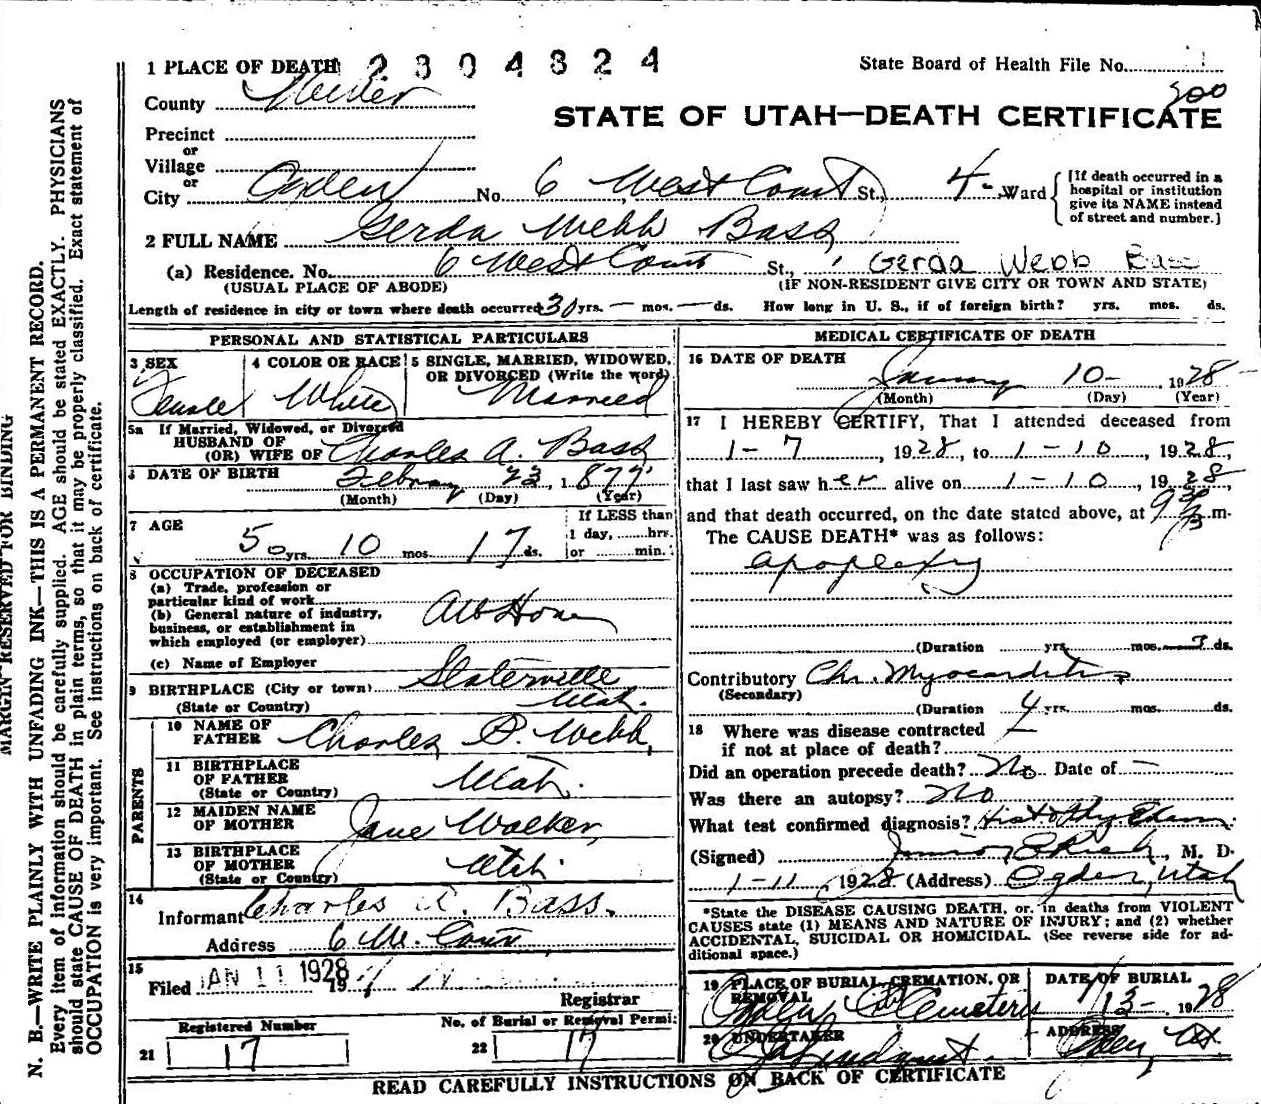 1 PLACE OF DEATH 2304324 State Board of Health File No.
County Weber 300
STATE OF UTAH—DEATH CERTIFICATE
Precinct
or
Village
or
City Ogden No. 6 West Court St., 4- Ward
[If death occurred in a
hospital or institution
give its NAME instead
of street and number.]
2 FULL NAME Gerda Webb Bass
(a) Residence. No. 6 West Court St., Gerda Webb Bass
(USUAL PLACE OF ABODE) (IF NON-RESIDENT GIVE CITY OR TOWN AND STATE)
Length of residence in city or town where death occurred 30 yrs. — mos. — ds. How long in U. S., if of foreign birth? yrs. mos. ds.
PERSONAL AND STATISTICAL PARTICULARS
3 SEX 4 COLOR OR RACE 5 SINGLE, MARRIED, WIDOWED,
OR DIVORCED (Write the word)
Female White Married
5a If Married, Widowed, or Divorced
HUSBAND OF
(OR) WIFE OF Charles A. Bass
6 DATE OF BIRTH February 23, 1877
(Month) (Day) (Year)
7 AGE If LESS than
1 day, hrs.
50 yrs. 10 mos. 17 ds. or min.
8 OCCUPATION OF DECEASED
(a) Trade, profession or
particular kind of work
(b) General nature of industry,
business, or establishment in
which employed (or employer)
At Home
(c) Name of Employer
9 BIRTHPLACE (City or town) Slaterville
(State or Country) Utah.
PARENTS
10 NAME OF
FATHER Charles P. Webb
11 BIRTHPLACE
OF FATHER
(State or Country) Utah.
12 MAIDEN NAME
OF MOTHER Jane Walker
13 BIRTHPLACE
OF MOTHER
(State or Country) Utah.
14
Informant Charles A. Bass.
Address 6 W. Court
15
Filed JAN 11 1928 19
Registrar
Registered Number No. of Burial or Removal Permi:
21 17 22 17
MEDICAL CERTIFICATE OF DEATH
16 DATE OF DEATH
January 10- , 1928-
(Month) (Day) (Year)
17 I HEREBY CERTIFY, That I attended deceased from
1-7 , 1928, to 1-10 , 1928,
that I last saw her alive on 1-10 , 1928,
and that death occurred, on the date stated above, at 9 30 m.
The CAUSE DEATH* was as follows:
apoplexy
(Duration yrs. mos. 3 ds.
Contributory Chr. Myocarditis
(Secondary)
(Duration 4 yrs. mos. ds.
18 Where was disease contracted
if not at place of death?
Did an operation precede death? No Date of —
Was there an autopsy? No
What test confirmed diagnosis?
(Signed) Junior E Rich, M. D.
1-11, 1928 (Address) Ogden, Utah
*State the DISEASE CAUSING DEATH, or, in deaths from VIOLENT
CAUSES state (1) MEANS AND NATURE OF INJURY; and (2) whether
ACCIDENTAL, SUICIDAL OR HOMICIDAL. (See reverse side for ad-
ditional space.)
19 PLACE OF BURIAL, CREMATION, OR
REMOVAL DATE OF BURIAL
Ogden Cemetery 1/13- 1928
20 UNDERTAKER ADDRESS
Lindquist. Ogden, Ut
READ CAREFULLY INSTRUCTIONS ON BACK OF CERTIFICATE
MARGIN RESERVED FOR BINDING
N. B.—WRITE PLAINLY WITH UNFADING INK—THIS IS A PERMANENT RECORD.
Every item of information should be carefully supplied. AGE should be stated EXACTLY. PHYSICIANS
should state CAUSE OF DEATH in plain terms, so that it may be properly classified. Exact statement of
OCCUPATION is very important. See instructions on back of certificate.